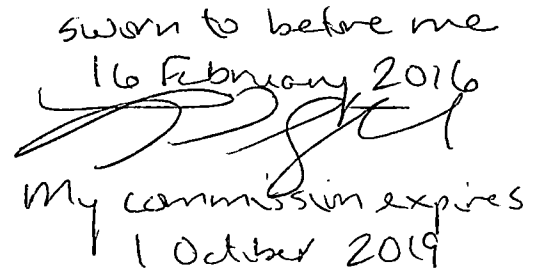 sworn to before me
16 February 2016
My commission expires
1 October 2019